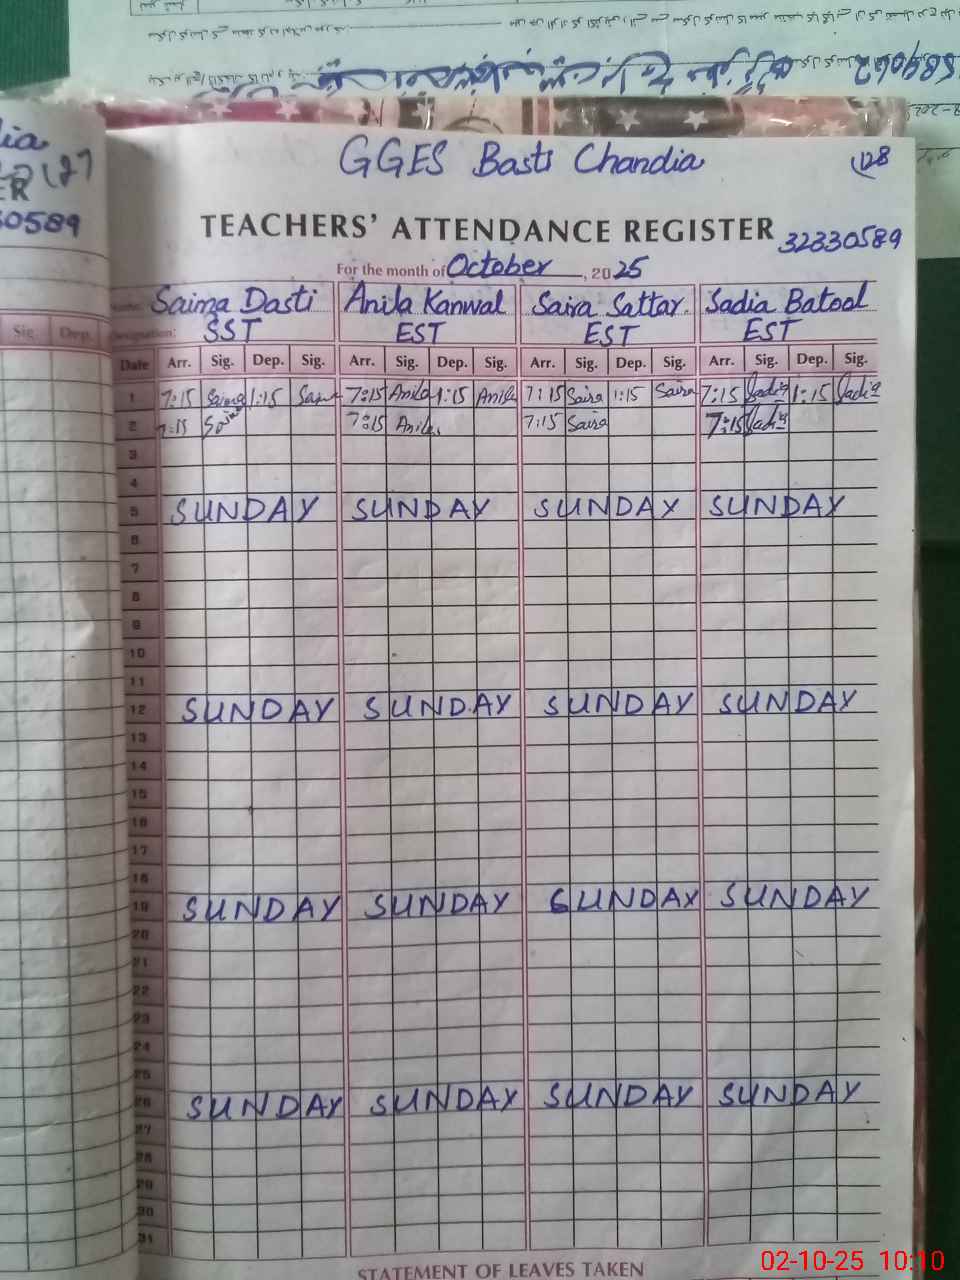 GGES Basti Chandia
128
TEACHERS' ATTENDANCE REGISTER
32330589
For the month of October, 2025
Saima Dasti Anila Kanwal Saira Sattar Sadia Batool
Designation: SST EST EST EST
Date Arr. Sig. Dep. Sig. Arr. Sig. Dep. Sig. Arr. Sig. Dep. Sig. Arr. Sig. Dep. Sig.
1 7:15 Saima 1:15 Saima 7:15 Anila 1:15 Anila 7:15 Saira 1:15 Saira 7:15 Sadia 1:15 Sadia
2 7:15 Saima 7:15 Anila 7:15 Saira 7:15 Sadia
3
4
5 SUNDAY SUNDAY SUNDAY SUNDAY
6
7
8
9
10
11
12 SUNDAY SUNDAY SUNDAY SUNDAY
13
14
15
16
17
18
19 SUNDAY SUNDAY SUNDAY SUNDAY
20
21
22
23
24
25
26 SUNDAY SUNDAY SUNDAY SUNDAY
27
28
29
30
31
STATEMENT OF LEAVES TAKEN
Sig. Dep.
02-10-25 10:10